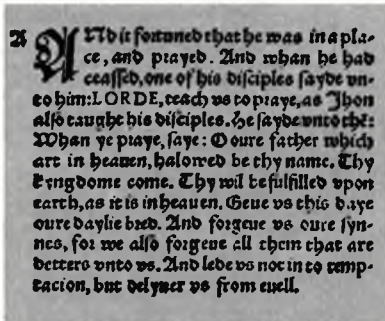 A AND it fortuned that he was in a pla-
ce, and prayed. And whan he had
ceassed, one of his disciples sayde vn-
to him: LORDE, teach vs to praye, as Jhon
also taught his disciples. He sayde vnto thē:
Whan ye praye, saye: O oure father which
art in heauen, halowed be thy name. Thy
kyngdome come. Thy wil be fulfilled vpon
earth, as it is in heauen. Geue vs this daye
oure daylie bred. And forgeue vs oure syn-
nes, for we also forgeue all them that are
detters vnto vs. And lede vs not in to temp-
tacion, but delyuer vs from euell.